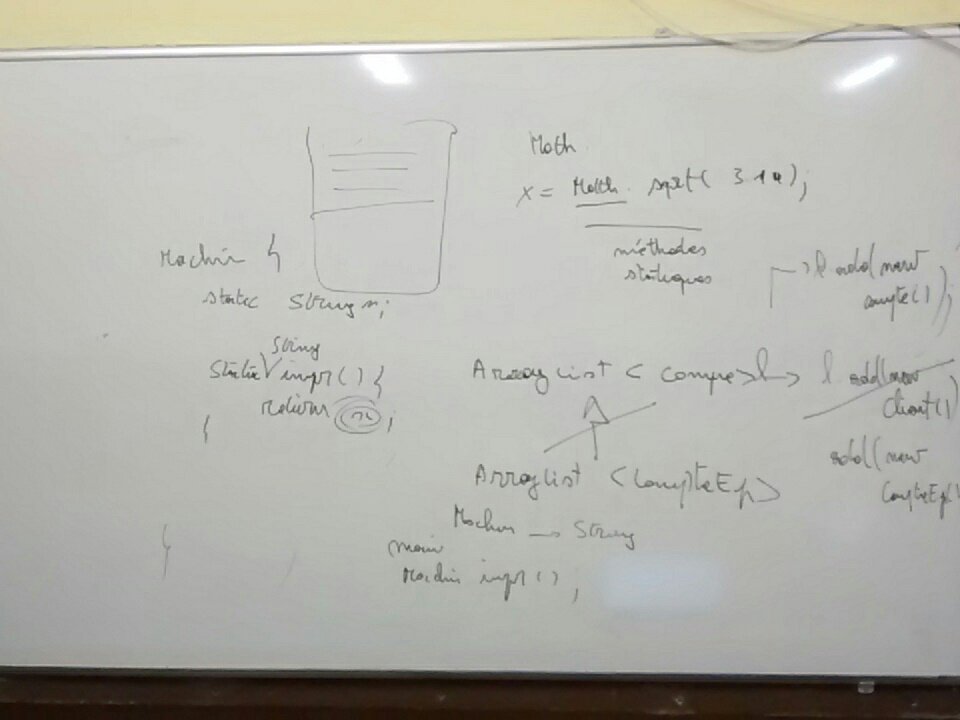 Math
x = Math. sqrt( 3.14);
méthodes
statiques
Machin {
static String n;
String
Static impr() {
return n ;
l add(new
compte());
ArrayList < compte > l
l add(new
client()
ArrayList <CompteEp>
add(new
CompteEp(
Machin → String
main
Machin impr() ;